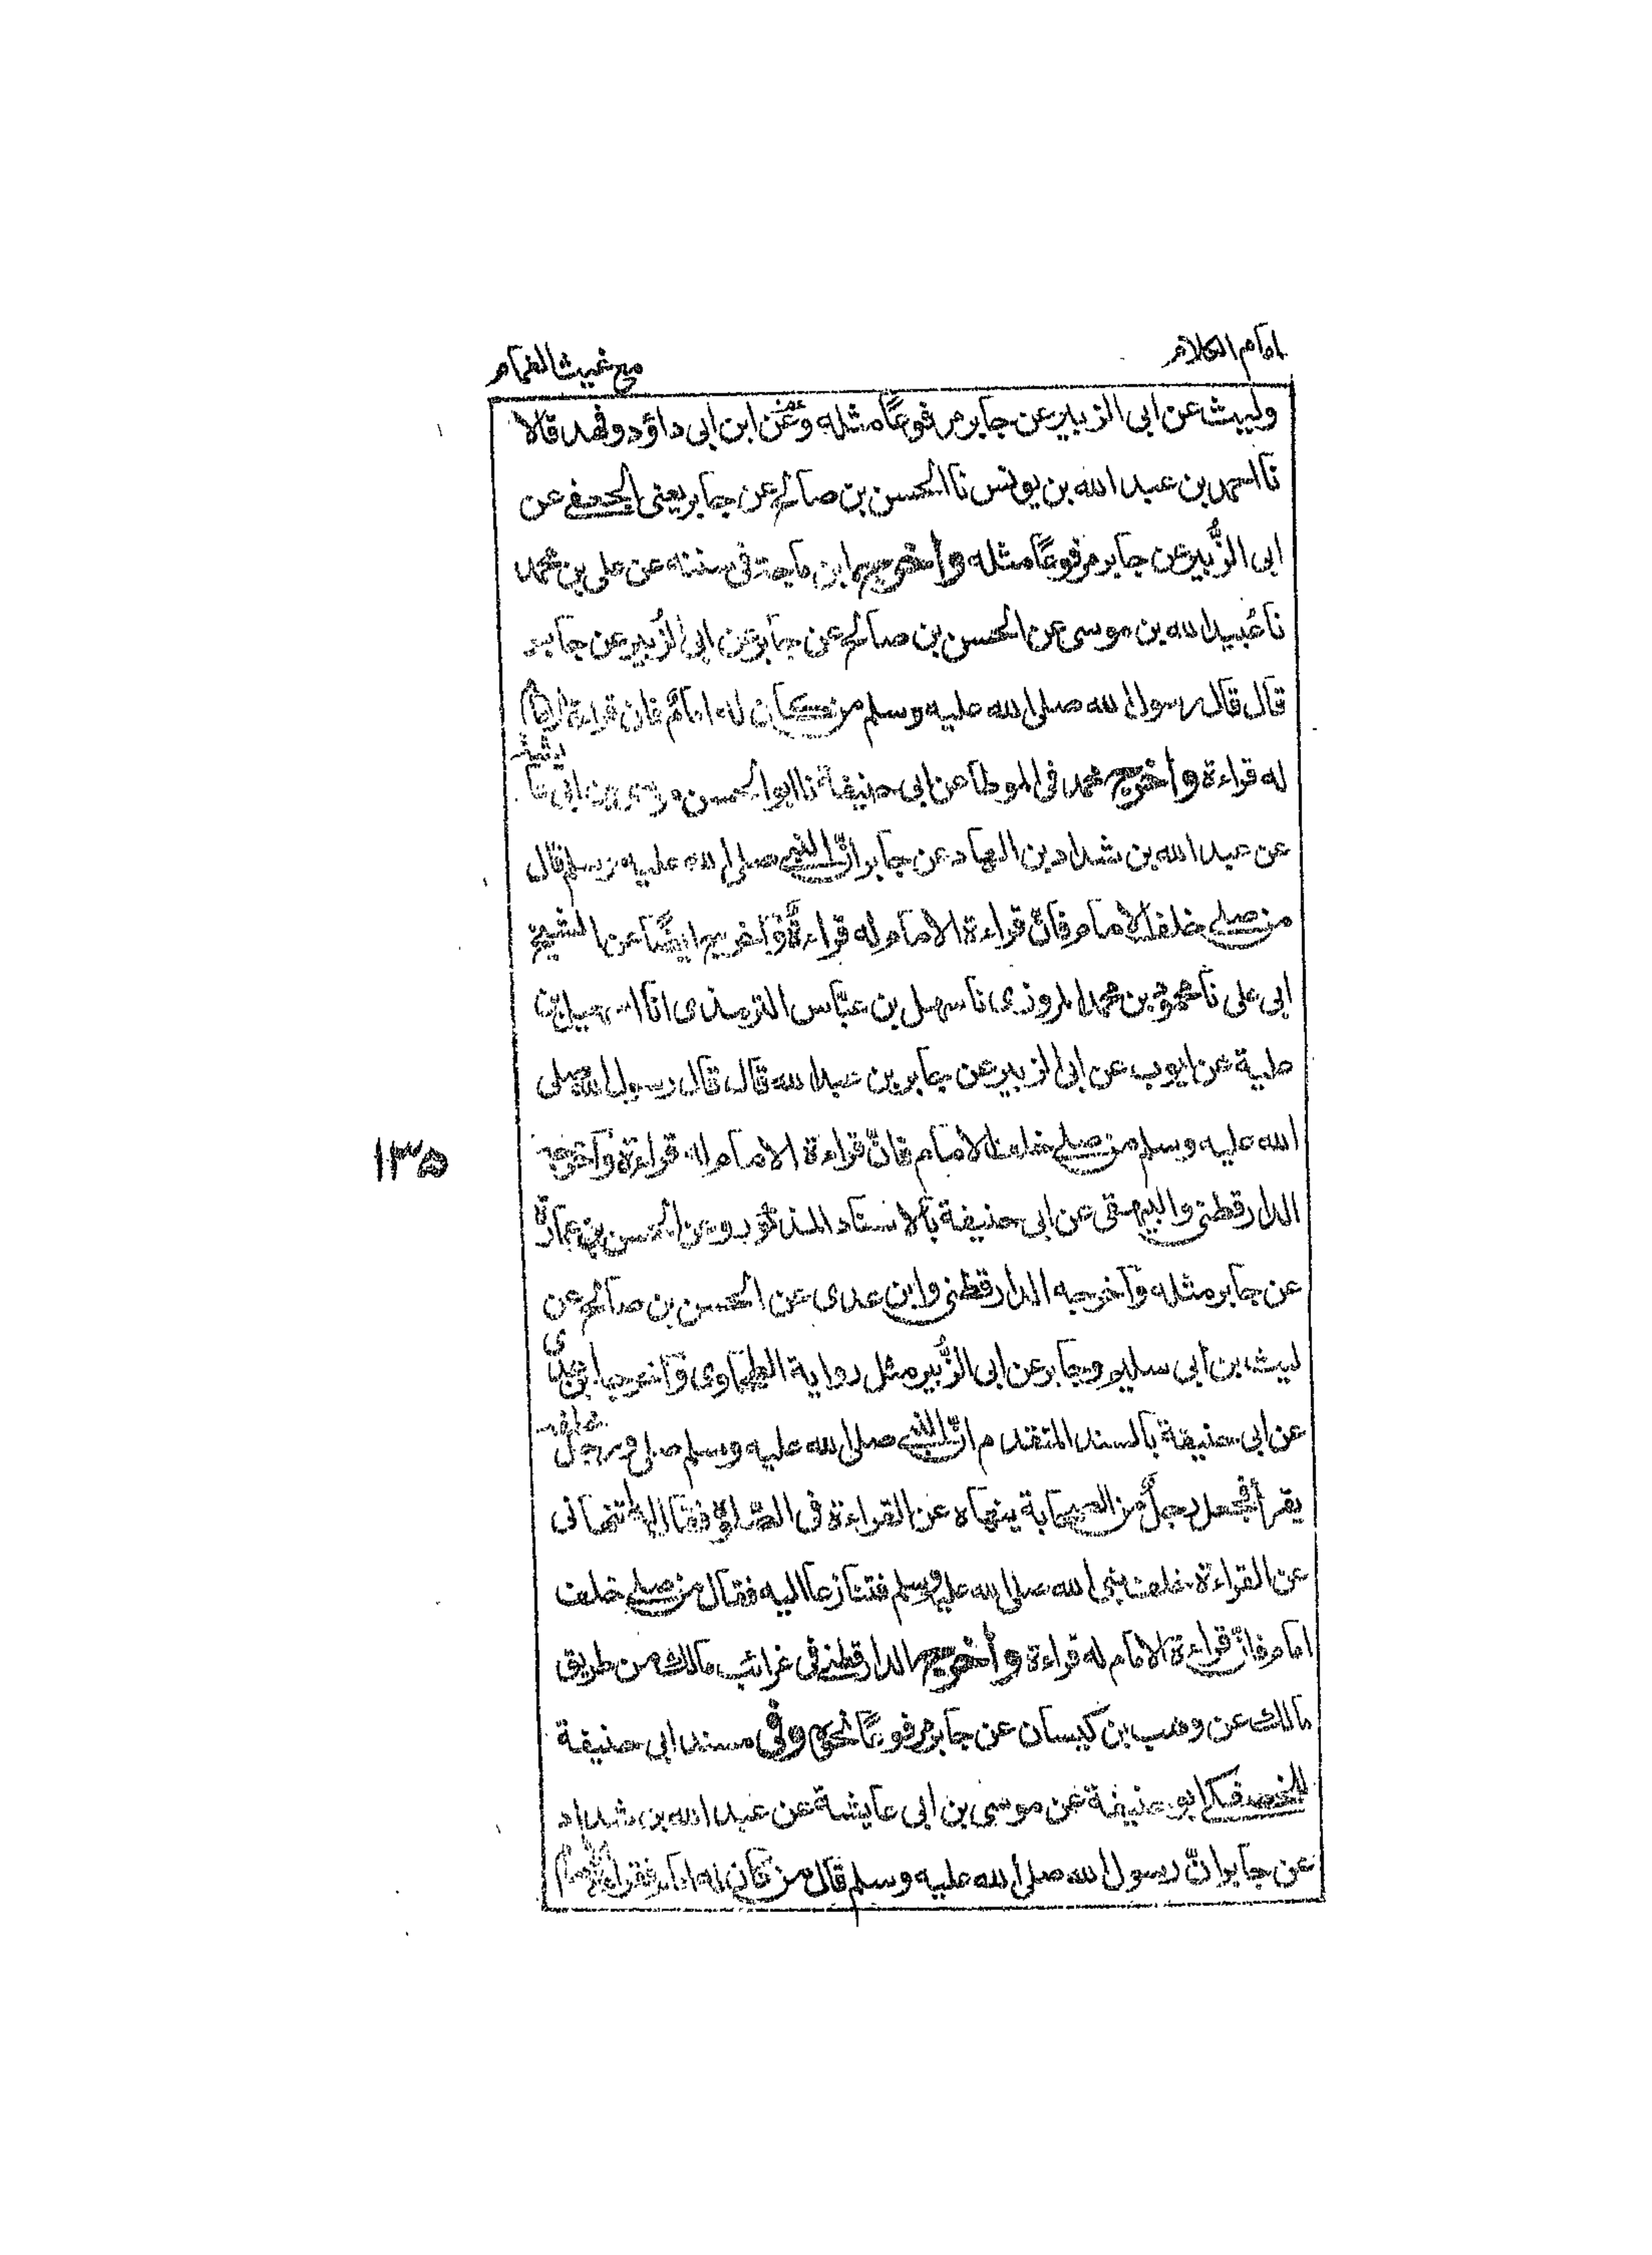 امام الكلام
مع غيث الغمام
وليث عن ابى الزبير عن جابر مرفوعًا مثله وعن ابن ابى داؤد وفهد قالا
نا احمد بن عبد الله بن يونس نا الحسن بن صالح عن جابر يعنى الجعفى عن
ابى الزُّبير عن جابر مرفوعًا مثله وأخرج ابن ماجة فى سننه عن على بن محمد
نا عُبيد الله بن موسى عن الحسن بن صالح عن جابر عن ابى الزُبير عن جابر
قال قال رسول الله صلى الله عليه وسلم من كان له امامٌ فان قراءة الامام
له قراءة وأخرج محمد فى الموطا عن ابى حنيفة نا ابو الحسن موسى بن ابى عايشة
عن عبد الله بن شداد بن الهاد عن جابر انّ النبى صلى الله عليه وسلم قال
من صلى خلف الامام فانّ قراءة الامام له قراءةٌ وَأخرج ايضًا عن الشيخ
ابى على نا محمود بن محمد المروزى نا سهل بن عبّاس الترمذى انا اسمعيل بن
علية عن ايوب عن ابى الزبير عن جابر بن عبد الله قال قال رسول الله صلى
الله عليه وسلم من صلى خلف الامام فانّ قراءة الامام له قراءة وَأخرج
الدارقطنى والبيهقى عن ابى حنيفة بالاسناد المذكور وعن الحسن بن عمارة
عن جابر مثله وَأخرجه الدارقطنى وابن عدى عن الحسن بن صالح عن
ليث بن أبى سليم وجابر عن ابى الزُّبير مثل رواية الطحاوى وَأخرج ابن عدى
عن ابى حنيفة بالسند المتقدم انّ النبى صلى الله عليه وسلم صلى ورجلٌ خلفه
يقرأ فجعل رجلٌ من الصحابة ينهاه عن القراءة فى الصّلوٰة فقال له اتنهانى
عن القراءة خلف نبى الله صلى الله عليه وسلم فتنازعا اليه فقال من صلى خلف
امام فانّ قراءة الامام له قراءة وأخرج الدارقطنى فى غرائب مالك من طريق
مالك عن وهب بن كيسان عن جابر مرفوعًا نحوه وفى مسند ابى حنيفة
للحصفكى ابو حنيفة عن موسى بن ابى عايشة عن عبد الله بن شداد
عن جابر انّ رسول الله صلى الله عليه وسلم قال من كان له امام فقراءة الامام
١٣٥